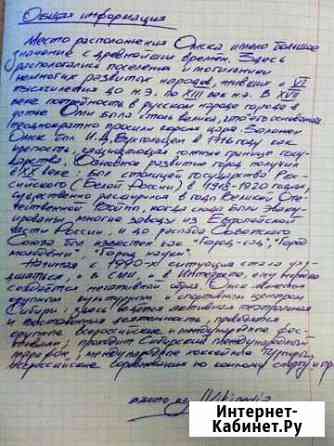 Общая информация
Место расположения Омска имело большое
значение с древнейших времен. Здесь
располагались поселения и могильники
немногих развитых народов, живших с VI
тысячелетия до н.э. по XIII век н.э. В XVII
веке потребность в русском народе города в
устье Оми была столь велика, что его основания
неоднократно просили короля царя. Заложен
Омск был И.Д. Бухгольцем в 1716 году как
крепость, защищающая южные границы госу-
дарства. Основное развитие город получил
в XX веке: был столицей государства Рос-
сийского (Белой России) в 1918-1920 годах,
существенно расширился в годы Великой Оте-
чественной войны, когда сюда были эвакуи-
рованы многие заводы из Европейской
части России, и до распада Советского
Союза был известен как "Город-сад", "Город
молодёжи", "Город науки".
Начиная с 1990-х ситуация стала ухуд-
шаться, в СМИ, в Интернете, ему нередко
создаётся негативный образ. Омск является
крупным культурным и спортивным центром
Сибири: здесь ведётся активная театральная
и выставочная деятельность, проводятся
Всероссийские и международные фес-
тивали, проходит Сибирский международный
марафон, международные хоккейные турниры,
всероссийские соревнования по конному спорту и пр.
Интернет-
Кабинет.Ру